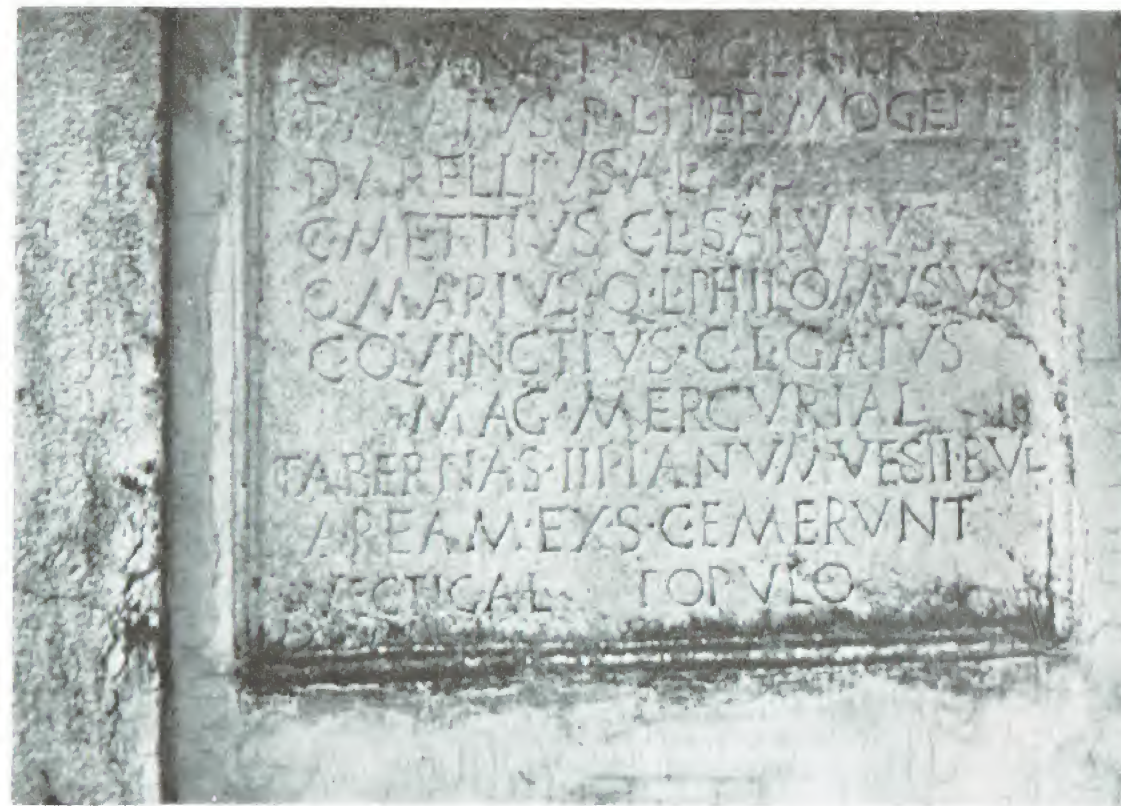 C·QVINCTIVS·C·L·HERO
P·L·HERMOGENE
D·ARELLIVS·A·L
C·METTIVS·C·L·SALVIVS
Q·MARIVS·Q·L·PHILOMVSVS
C·QVINCTIVS·C·L·GATVS
MAG·MERCVRIAL
TABERNAS·III·PIANVM·VESTIBVL
AREAM·EX·S·C·EMERVNT
VECTIGAL POPVLO